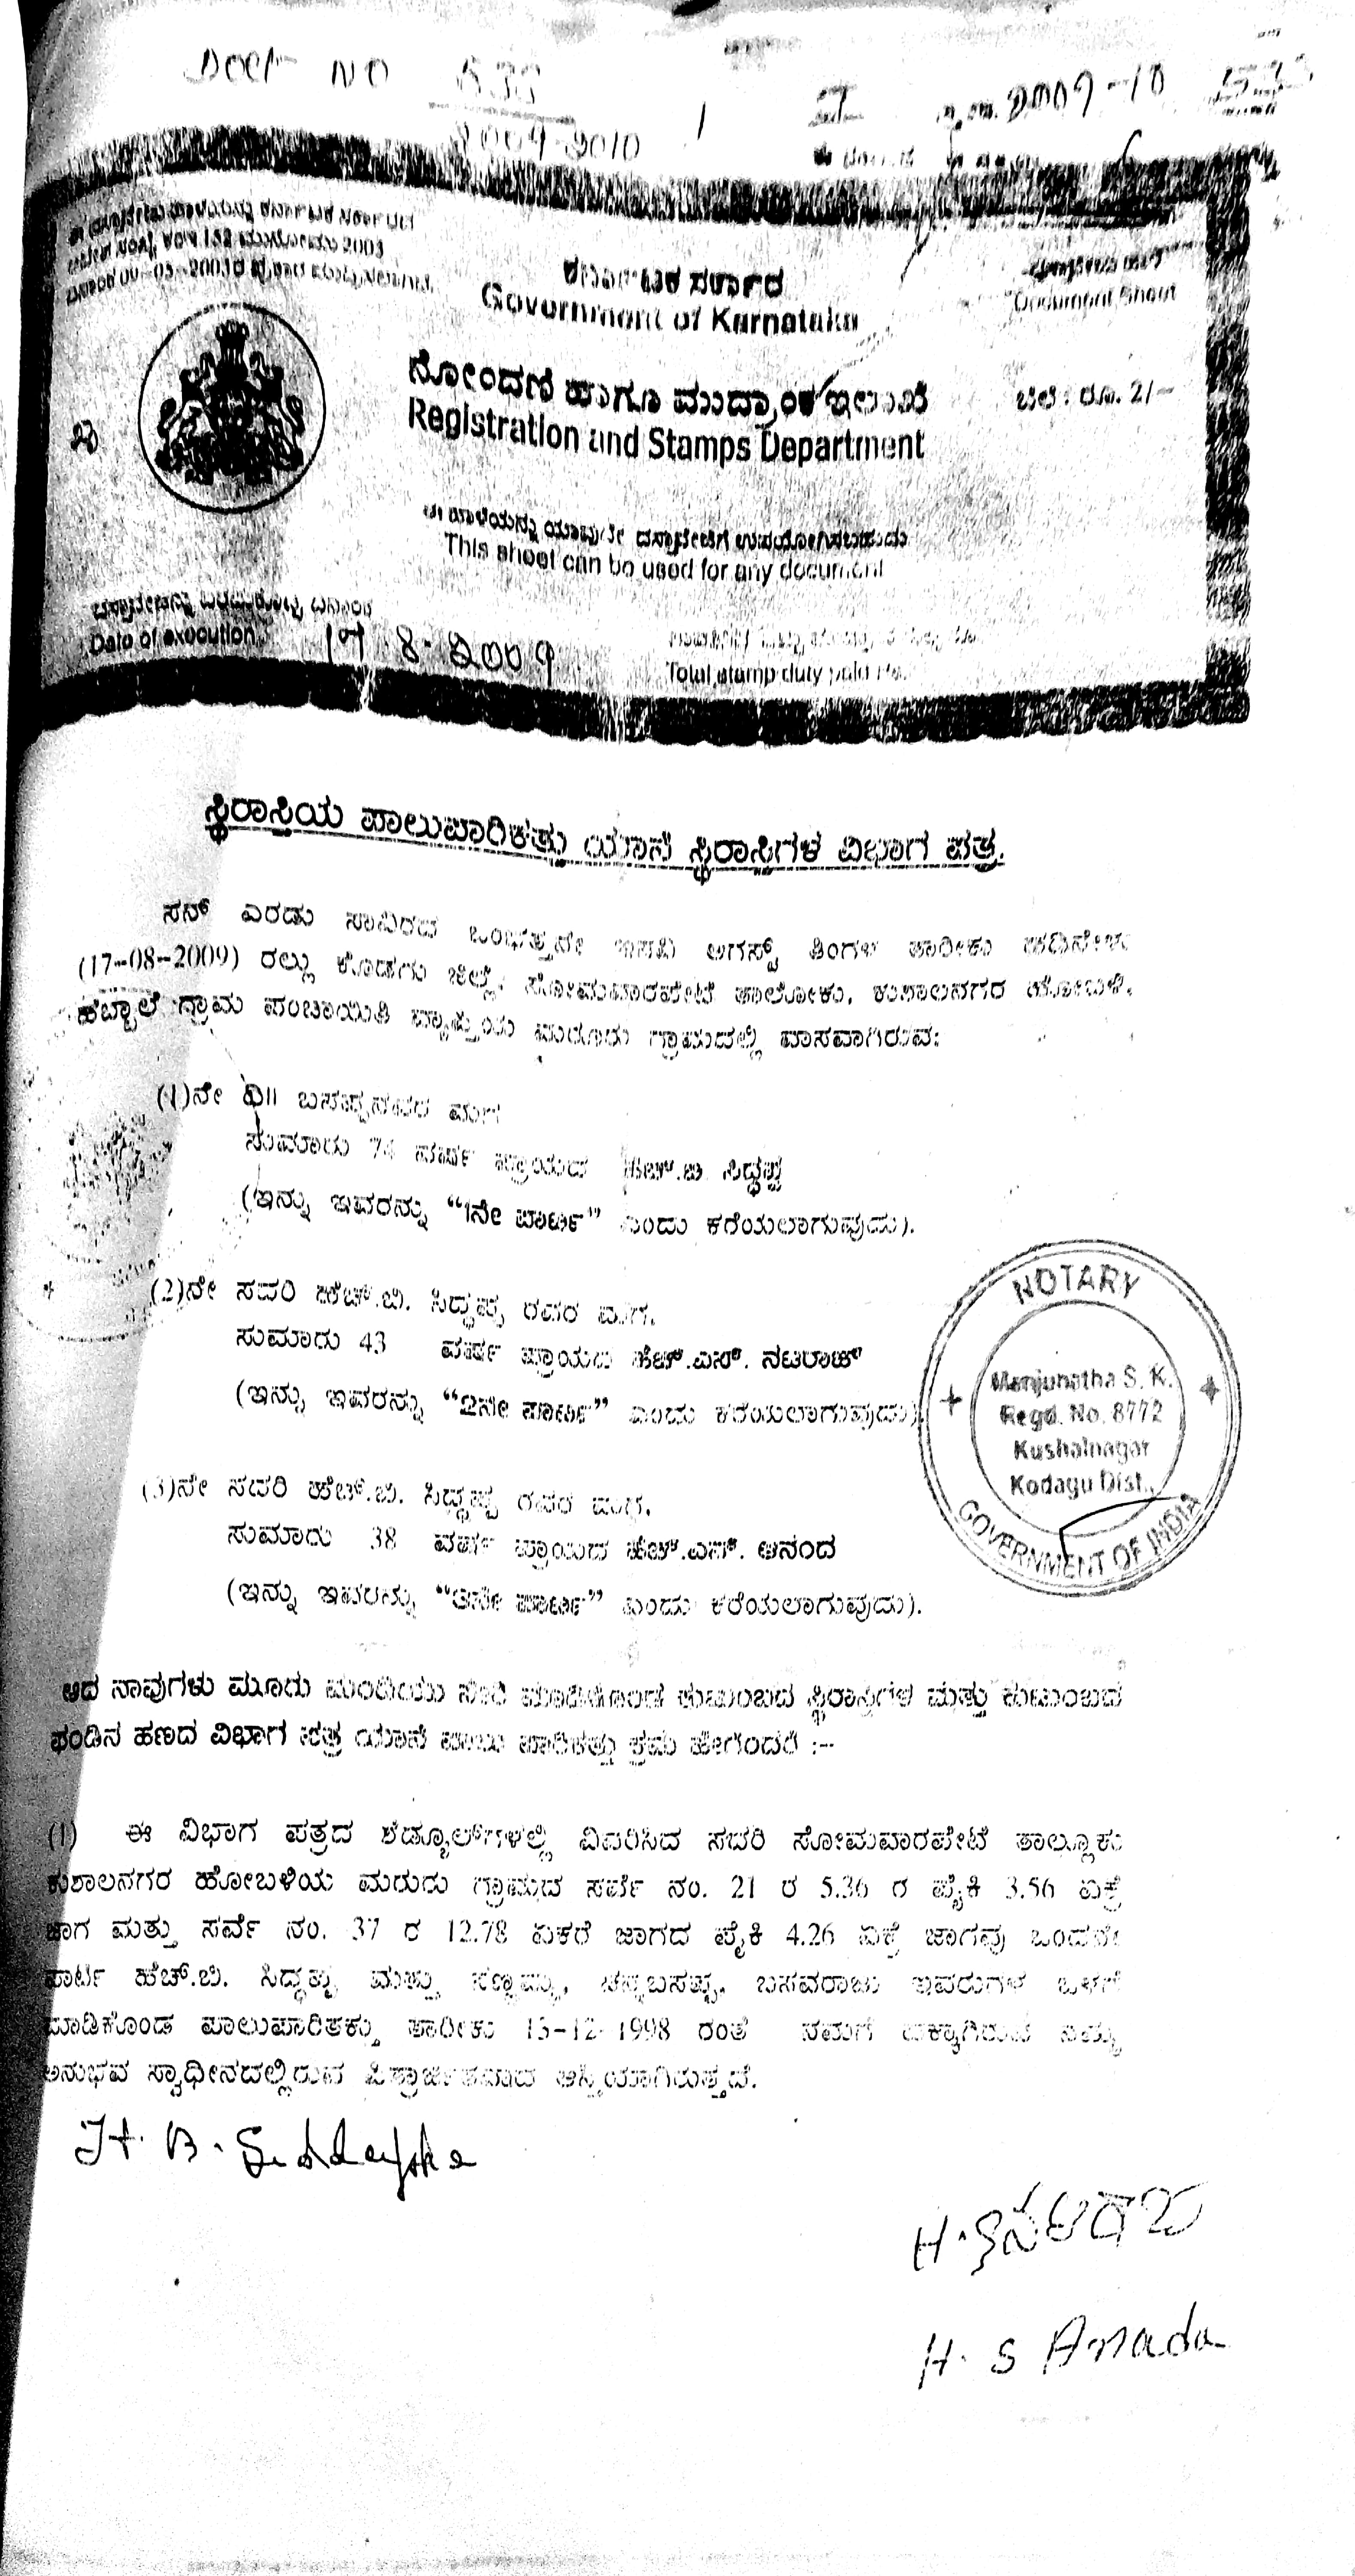 Doct No 538
2009-2010
2009-10
ಕರ್ನಾಟಕ ಸರ್ಕಾರ
Government of Karnataka
Document Sheet
ನೋಂದಣಿ ಹಾಗೂ ಮುದ್ರಾಂಕ ಇಲಾಖೆ
Registration and Stamps Department
ಬೆಲೆ : ರೂ. 2/-
ಈ ಹಾಳೆಯನ್ನು ಯಾವುದೇ ದಸ್ತಾವೇಜಿಗೆ ಉಪಯೋಗಿಸಬಹುದು
This sheet can be used for any document
Date of execution 17 8-2009
Total stamp duty paid Rs.
ಸ್ಥಿರಾಸ್ತಿಯ ಪಾಲುಪಾರಿಕತ್ತು ಯಾನೆ ಸ್ಥಿರಾಸ್ತಿಗಳ ವಿಭಾಗ ಪತ್ರ.
ಸನ್ ಎರಡು ಸಾವಿರದ ಒಂಭತ್ತನೇ ಇಸವಿ ಆಗಸ್ಟ್ ತಿಂಗಳ ತಾರೀಕು ಹದಿನೇಳು
(17-08-2009) ರಲ್ಲು ಕೊಡಗು ಜಿಲ್ಲೆ, ಸೋಮವಾರಪೇಟೆ ತಾಲೋಕು, ಕುಶಾಲನಗರ ಹೋಬಳಿ,
ಹೆಬ್ಬಾಲೆ ಗ್ರಾಮ ಪಂಚಾಯಿತಿ ವ್ಯಾಪ್ತಿಯ ಮರೂರು ಗ್ರಾಮದಲ್ಲಿ ವಾಸವಾಗಿರುವ:
(1)ನೇ ದಿ|| ಬಸಪ್ಪನವರ ಮಗ
ಸುಮಾರು 74 ವರ್ಷ ಪ್ರಾಯದ ಹೆಚ್.ಬಿ ಸಿದ್ಧಪ್ಪ
(ಇನ್ನು ಇವರನ್ನು “1ನೇ ಪಾರ್ಟಿ” ಎಂದು ಕರೆಯಲಾಗುವುದು).
(2)ನೇ ಸದರಿ ಹೆಚ್.ಬಿ. ಸಿದ್ಧಪ್ಪ ರವರ ಮಗ,
ಸುಮಾರು 43 ವರ್ಷ ಪ್ರಾಯದ ಹೆಚ್.ಎಸ್. ನಟರಾಜ್
(ಇನ್ನು ಇವರನ್ನು “2ನೇ ಪಾರ್ಟಿ” ಎಂದು ಕರೆಯಲಾಗುವುದು)
NOTARY
Manjunatha S. K.
Regd. No. 8772
Kushalnagar
Kodagu Dist.,
GOVERNMENT OF INDIA
(3)ನೇ ಸದರಿ ಹೆಚ್.ಬಿ. ಸಿದ್ಧಪ್ಪ ರವರ ಮಗ,
ಸುಮಾರು 38 ವರ್ಷ ಪ್ರಾಯದ ಹೆಚ್.ಎಸ್. ಆನಂದ
(ಇನ್ನು ಇವರನ್ನು “3ನೇ ಪಾರ್ಟಿ” ಎಂದು ಕರೆಯಲಾಗುವುದು).
ಆದ ನಾವುಗಳು ಮೂರು ಮಂದಿಯು ಸೇರಿ ಮಾಡಿಕೊಂಡ ಕುಟುಂಬದ ಸ್ಥಿರಾಸ್ತಿಗಳ ಮತ್ತು ಕುಟುಂಬದ
ಫಂಡಿನ ಹಣದ ವಿಭಾಗ ಪತ್ರ ಯಾನೆ ಪಾಲು ಪಾರಿಕತ್ತು ಕ್ರಮ ಹೇಗೆಂದರೆ :-
(1) ಈ ವಿಭಾಗ ಪತ್ರದ ಶೆಡ್ಯೂಲ್‌ಗಳಲ್ಲಿ ವಿವರಿಸಿದ ಸದರಿ ಸೋಮವಾರಪೇಟೆ ತಾಲ್ಲೂಕು
ಕುಶಾಲನಗರ ಹೋಬಳಿಯ ಮರುರು ಗ್ರಾಮದ ಸರ್ವೆ ನಂ. 21 ರ 5.36 ರ ಪೈಕಿ 3.56 ಏಕ್ರೆ
ಜಾಗ ಮತ್ತು ಸರ್ವೆ ನಂ. 37 ರ 12.78 ಏಕರೆ ಜಾಗದ ಪೈಕಿ 4.26 ಏಕ್ರೆ ಜಾಗವು ಒಂದನೇ
ಪಾರ್ಟಿ ಹೆಚ್.ಬಿ. ಸಿದ್ಧಪ್ಪ ಮತ್ತು ಸಣ್ಣಪ್ಪ, ಚನ್ನಬಸಪ್ಪ, ಬಸವರಾಜು ಇವರುಗಳ ಒಳಗೆ
ಮಾಡಿಕೊಂಡ ಪಾಲುಪಾರಿಕತ್ತು ತಾರೀಕು 13-12-1998 ರಂತೆ ನಮಗೆ ಹಕ್ಕಾಗಿರುವ ನಮ್ಮ
ಅನುಭವ ಸ್ವಾಧೀನದಲ್ಲಿರುವ ಪಿತ್ರಾರ್ಜಿತವಾದ ಆಸ್ತಿಯಾಗಿರುತ್ತದೆ.
H. B. Siddappa
H. S Anada